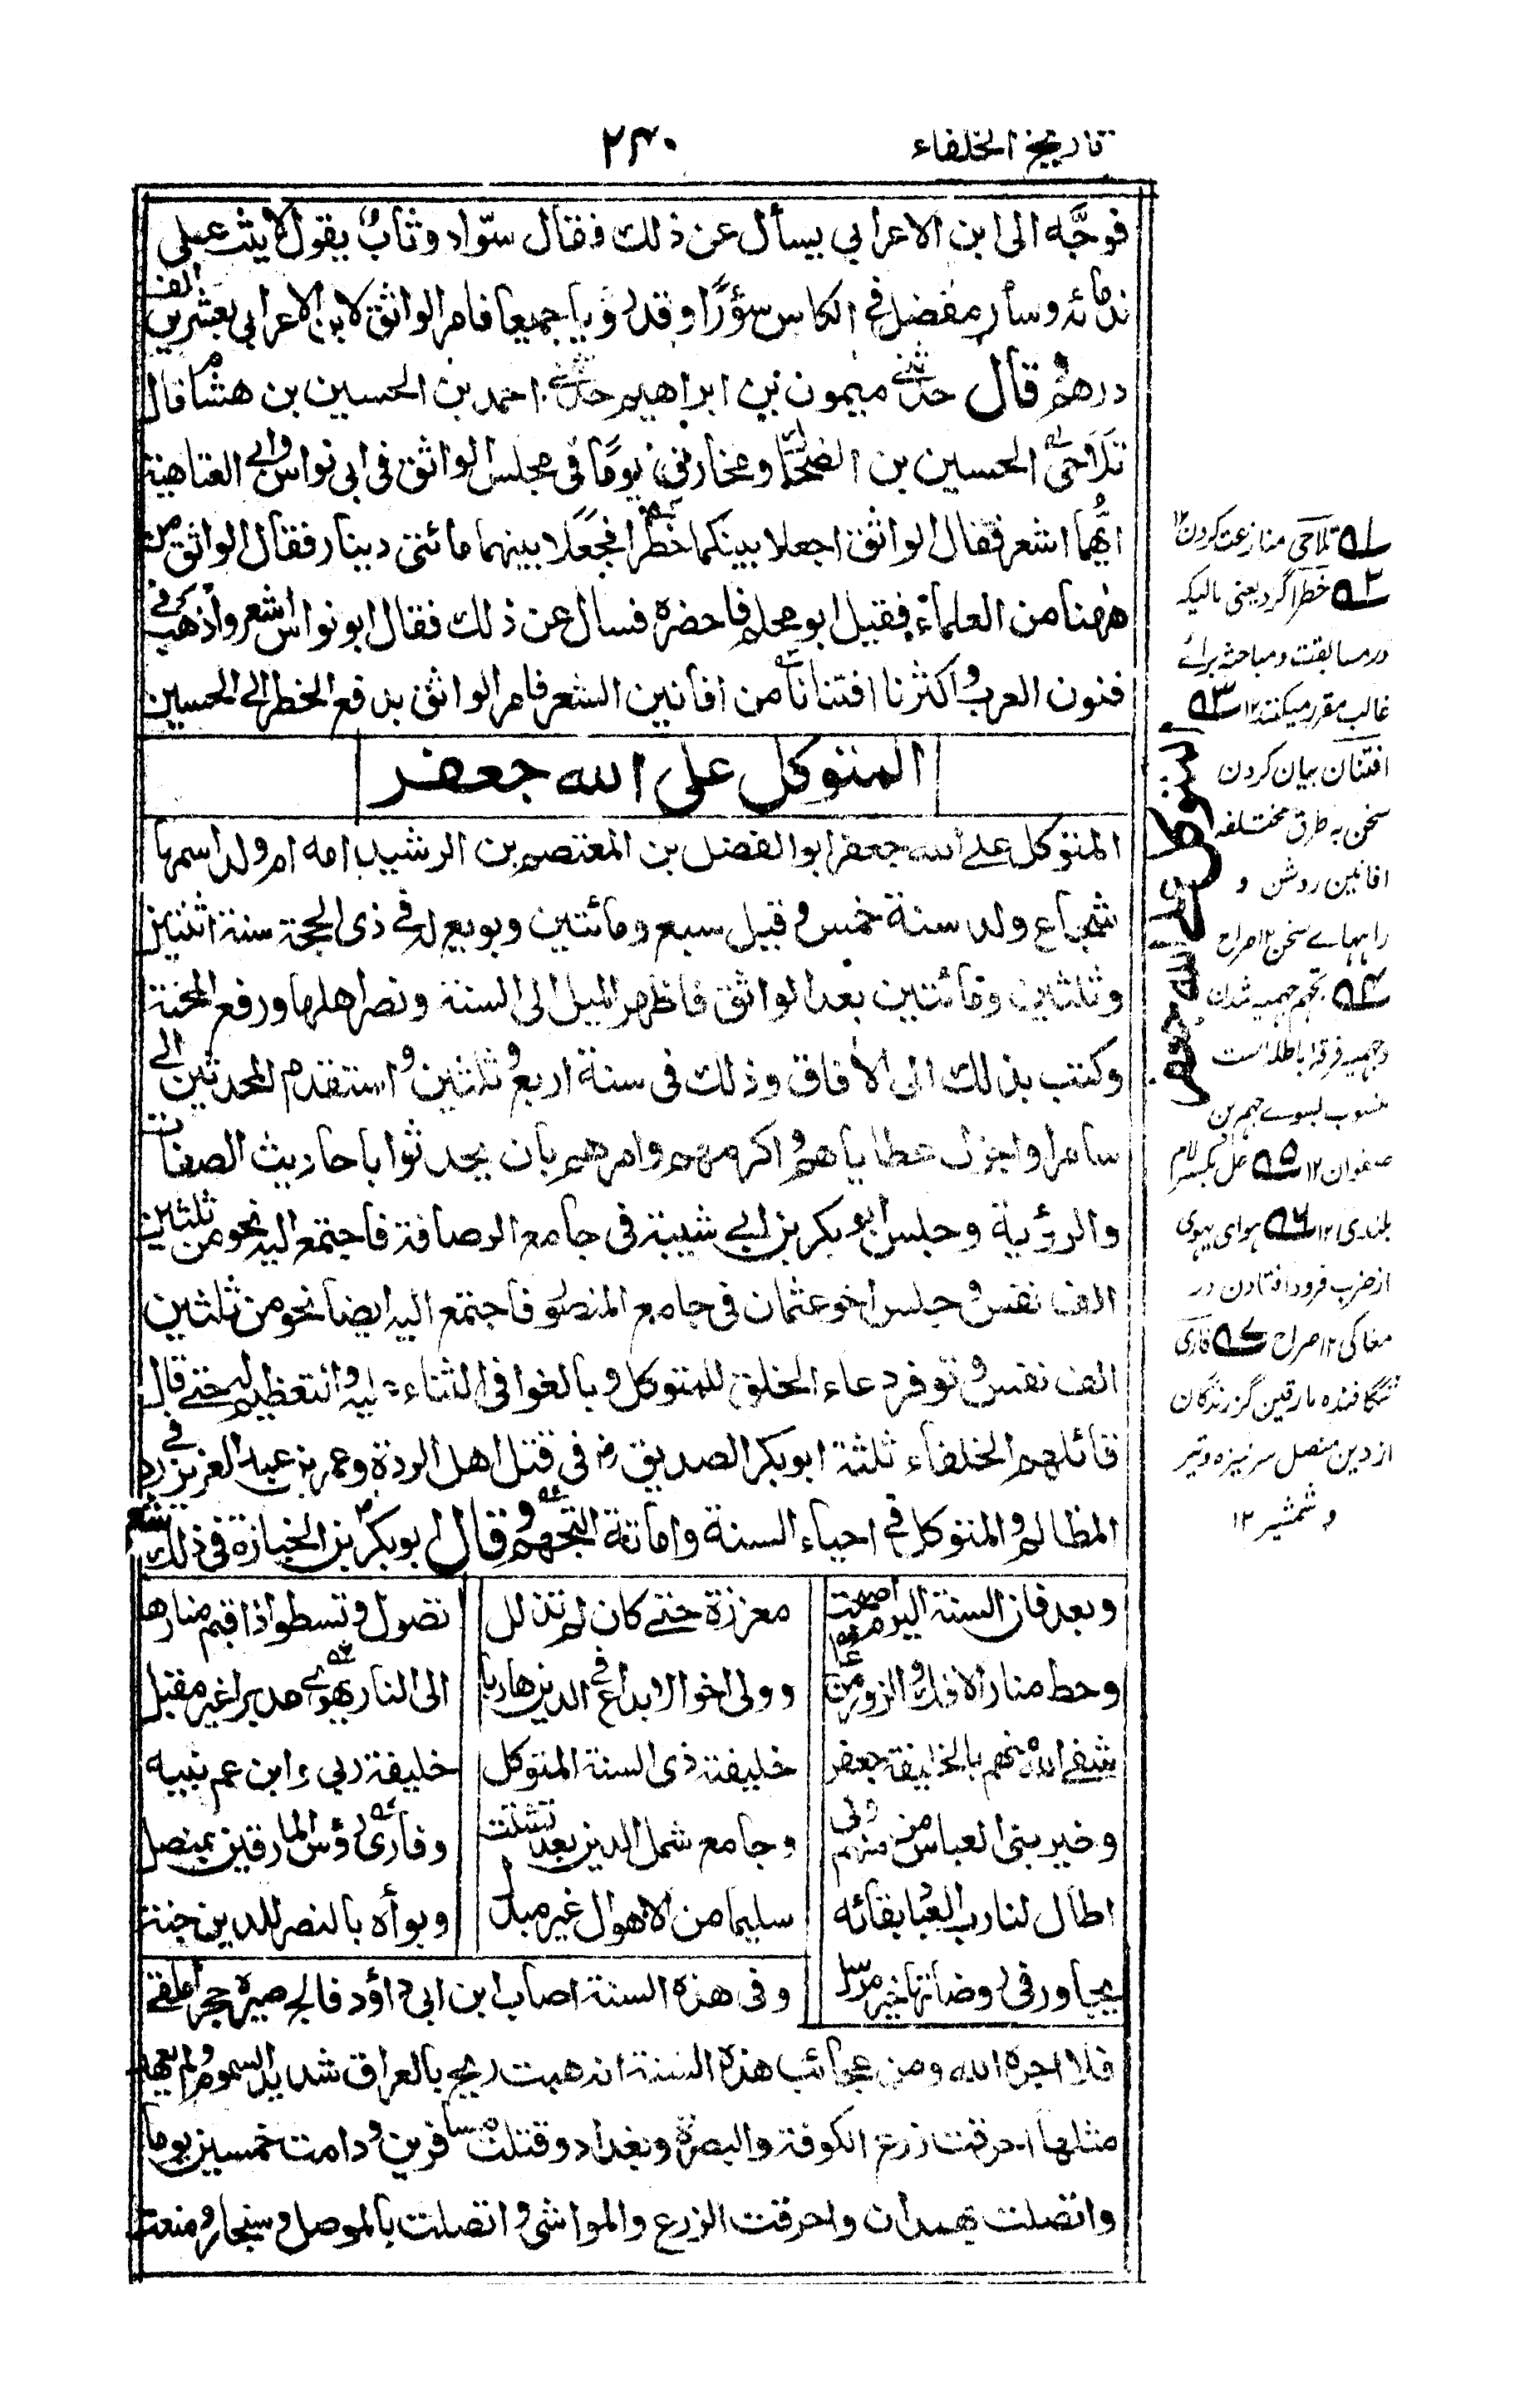 تاریخ الخلفاء
۲۴۰
فوجَّه الى ابن الاعرابي يسأل عن ذلك فقال سوّاد وثاب يقول لا يثب على
ندمائه وسأر مفضل في الكاس سؤرًا وقد رويا جميعا فامر الواثق لابن الاعرابي بعشرين الف
درهم وقال حدثنى ميمون بن ابراهيم حدثنى احمد بن الحسين بن هشام قال
تلاحى الحسين بن الضحاك ومخارق يومًا في مجلس الواثق في ابي نواس وابي العتاهية
ايُّهما اشعر فقال الواثق اجعلا بينكما خطرا فجعلا بينهما مائتى دينار فقال الواثق من
ههنا من العلماء فقيل ابو محلم فاحضره فسال عن ذلك فقال ابو نواس اشعر واذهب في
فنون العرب واكثرنا افتنانا من افانين الشعر فامر الواثق بدفع الخطر الى الحسين
المتوكل على الله جعفر
المتوكل على الله جعفر ابو الفضل بن المعتصم بن الرشيد امه ام ولد اسمها
شجاع ولد سنة خمس وقيل سبع ومائتين وبويع له في ذى الحجة سنة اثنتين
وثلثين ومائتين بعد الواثق فاظهر الميل الى السنة ونصر اهلها ورفع المحنة
وكتب بذلك الى الأفاق وذلك فى سنة اربع وثلثين واستقدم المحدثين الى
سامرا واجزل عطاياهم واكرمهم وامرهم بان يحدثوا باحاديث الصفات
والرؤية وجلس ابو بكر بن ابى شيبة فى جامع الرصافة فاجتمع اليه نحو من ثلثين
الف نفس وجلس اخو عثمان فى جامع المنصور فاجتمع اليه ايضا نحو من ثلثين
الف نفس وتوفر دعاء الخلق للمتوكل وبالغوا فى الثناء عليه والتعظيم له حتى قال
قائلهم الخلفاء ثلثة ابو بكر الصديق رض فى قتل اهل الردة وعمر بن عبد العزيز فى رد
المظالم والمتوكل فى احياء السنة واماتة التجهم وقال ابو بكر بن الخبازة فى ذلك شعر
وبعد فان السنة اليوم اصبحت
معززة حتى كان لم تذلل
تصول وتسطو اذ اقيم منارها
وحط منار الافك والزور من عل
وولى اخو الابداع فى الدين هاربا
الى النار يهوى مدبرا غير مقبل
شفى الله منهم بالخليفة جعفر
خليفته ذى السنة المتوكل
خليفة ربي وابن عم نبيه
وخير بنى العباس من منهم ولى
وجامع شمل الدين بعد تشتت
وفارى رؤس المارقين بمنصل
اطال لنا رب العباد بقائه
سليما من الاهوال غير مبدل
وبوأه بالنصر للدين جنة
يجاور في روضاتها خير مرسل
وفى هذه السنة اصاب ابن ابى دوأد فالج صيره حجرا ملقى
فلا اجره الله ومن عجائب هذه السنة انه هبت ريح بالعراق شديد السموم ولم يعهد
مثلها احرقت زرع الكوفة والبصرة وبغداد وقتلت المسافرين ودامت خمسين يوما
واتصلت بهمدان واحرقت الزرع والمواشى واتصلت بالموصل وسنجار ومنعت
المتوكل على الله جعفر
۱ تلاحی منازعت کردن ۱۲
۲ خطر اگر دیعنی مالیکه
در مسابقت و مباحثه برائے
غالب مقرر میکنند ۱۲ ۳
افتنان بیان کردن
سخن به طرق مختلفه
افانین روشن و
راہہاے سخن ۱۲ صراح
۴ تجهم جهمیه شدن
وجهمیه فرقه باطله است
منسوب بسوے جهم بن
صفوان ۱۲ ۵ عل بکسر لام
بلندی ۱۲ ۶ هوای یهوی
از ضرب فرود افتادن در
مغاکی ۱۲ صراح ۷ فاری
شگافنده مارقین گزرندگان
از دین منصل سر نیزه و تیر
و شمشیر ۱۲